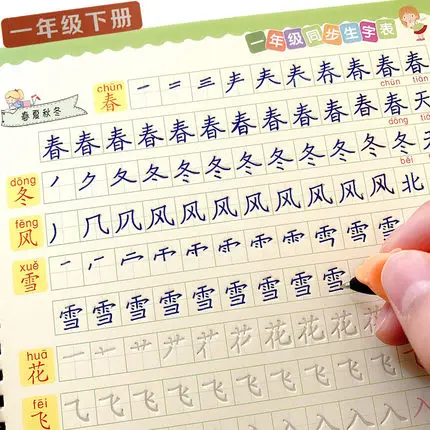 一年级下册
一年级同步生字表
春夏秋冬
chūn
春 一 二 三 春 春 春 春
chūn tiān
春 春 春 春 春 春 春 春 春 春 春 春 天
dōng
dōng tiān
冬 丿 夂 冬 冬 冬 冬 冬 冬 冬 冬 天
fēng
běi
风 丿 几 风 风 风 风 风 风 风 北
xuě
雪 雪 雪 雪
雪 雪 雪 雪 雪 雪 雪 雪 雪
huā
花 一 艹 花 花 花 花
fēi
飞 飞 飞 飞 飞 飞 飞 入 入 入